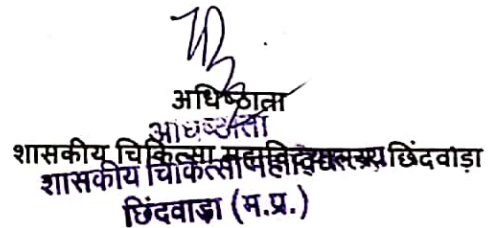 अधिष्ठाता
अधिष्ठाता
शासकीय चिकित्सा महाविद्यालय छिंदवाड़ा
शासकीय चिकित्सा महाविद्यालय
छिंदवाड़ा (म.प्र.)